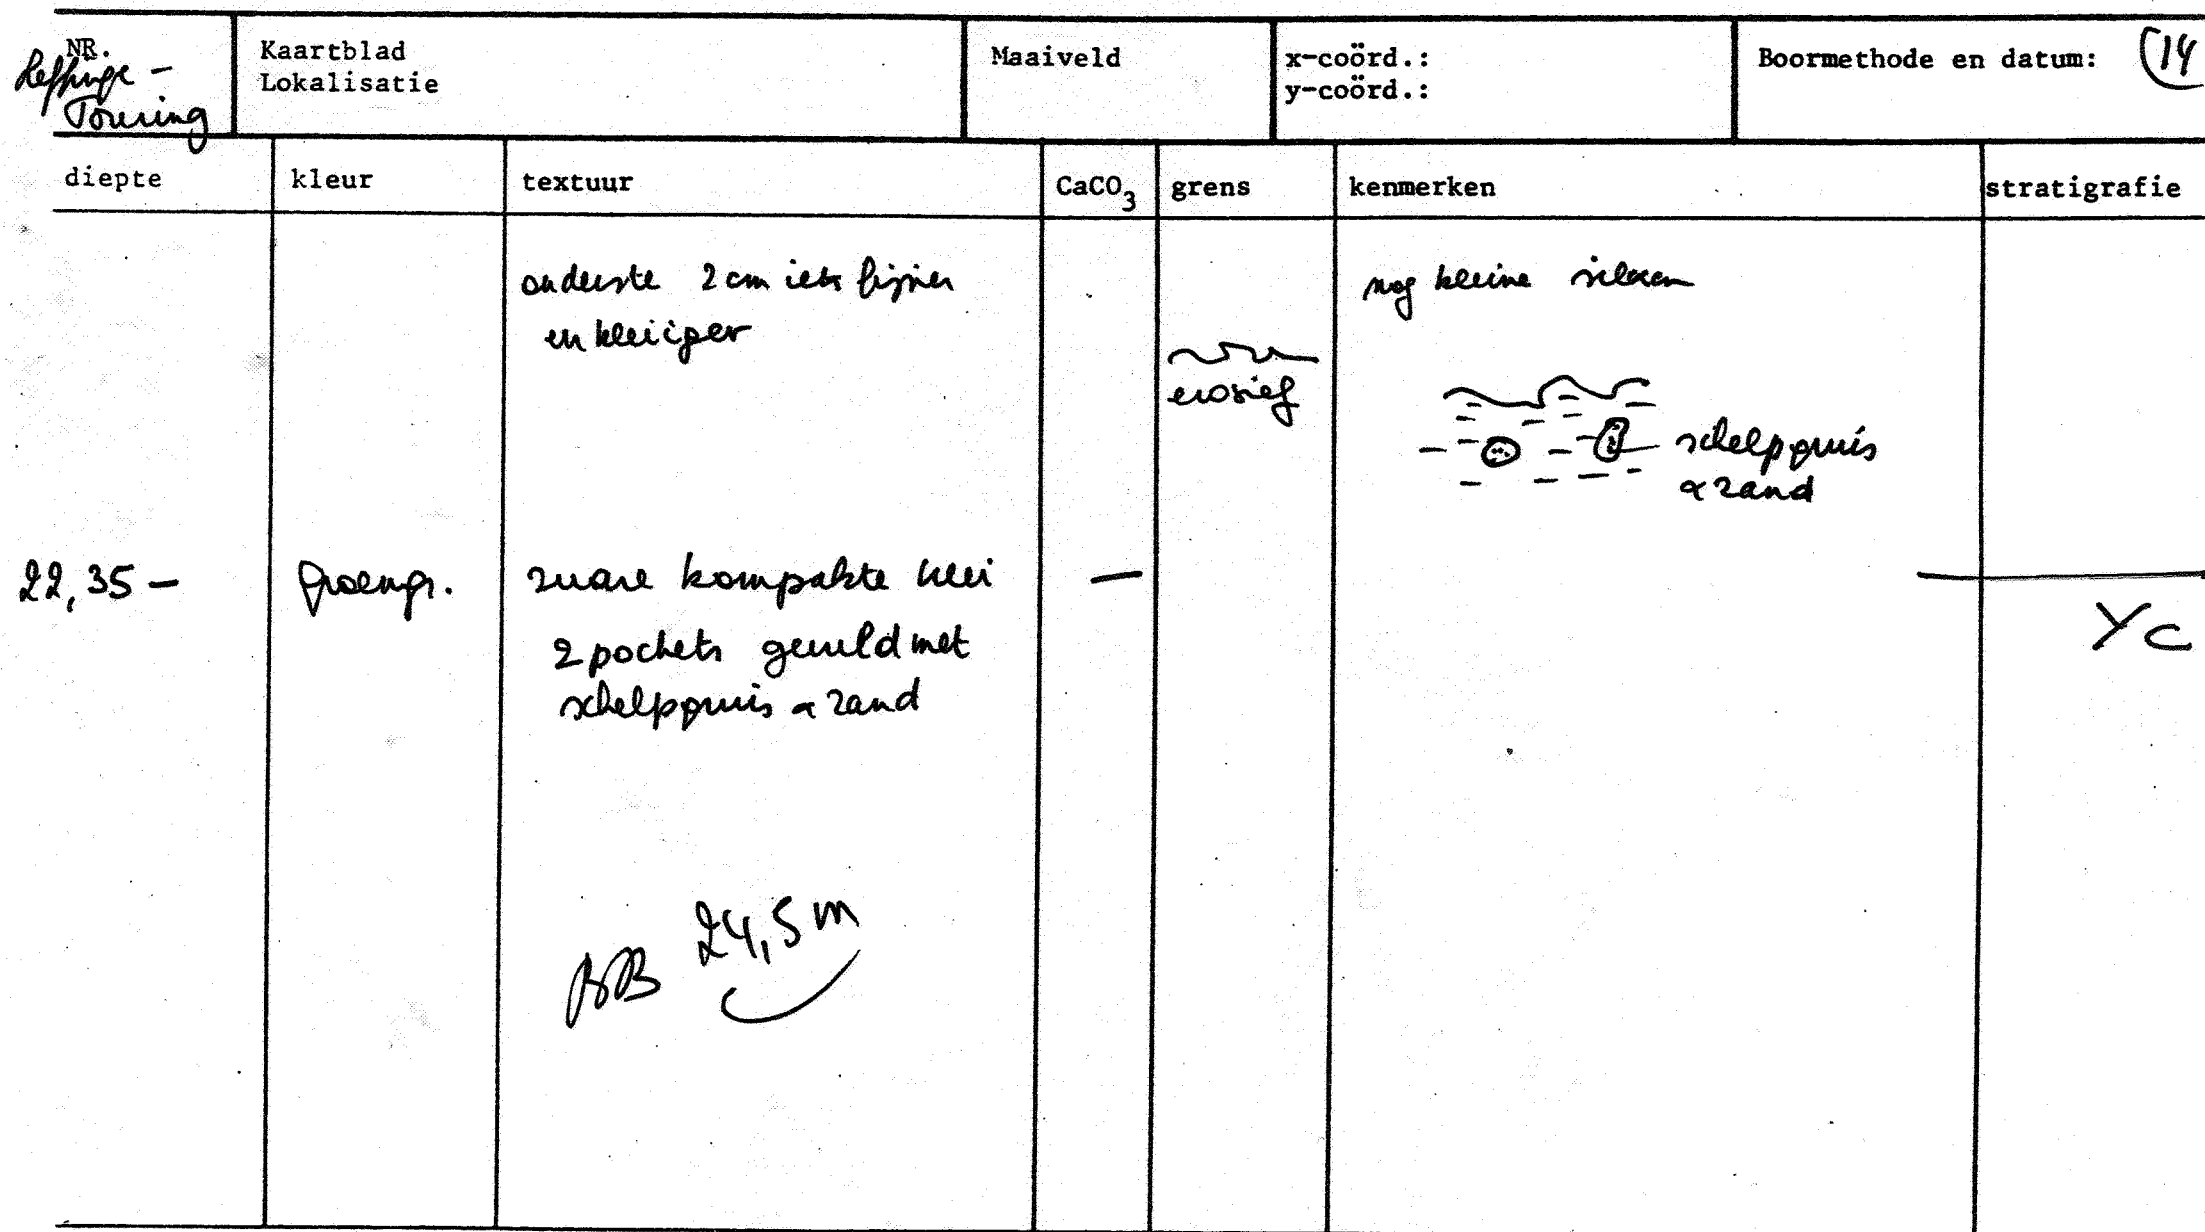 NR.
Leffinge -
Touring
Kaartblad
Lokalisatie
Maaiveld
x-coörd.:
y-coörd.:
Boormethode en datum:
14
diepte
kleur
textuur
CaCO3
grens
kenmerken
stratigrafie
onderste 2 cm iets fijner
en kleiiger
erosief
nog kleine silexen
schelpgruis
& zand
22,35 -
groengr.
zware kompakte klei
—
2 pockets gevuld met
schelpgruis & zand
Yc
BB 24,5 m